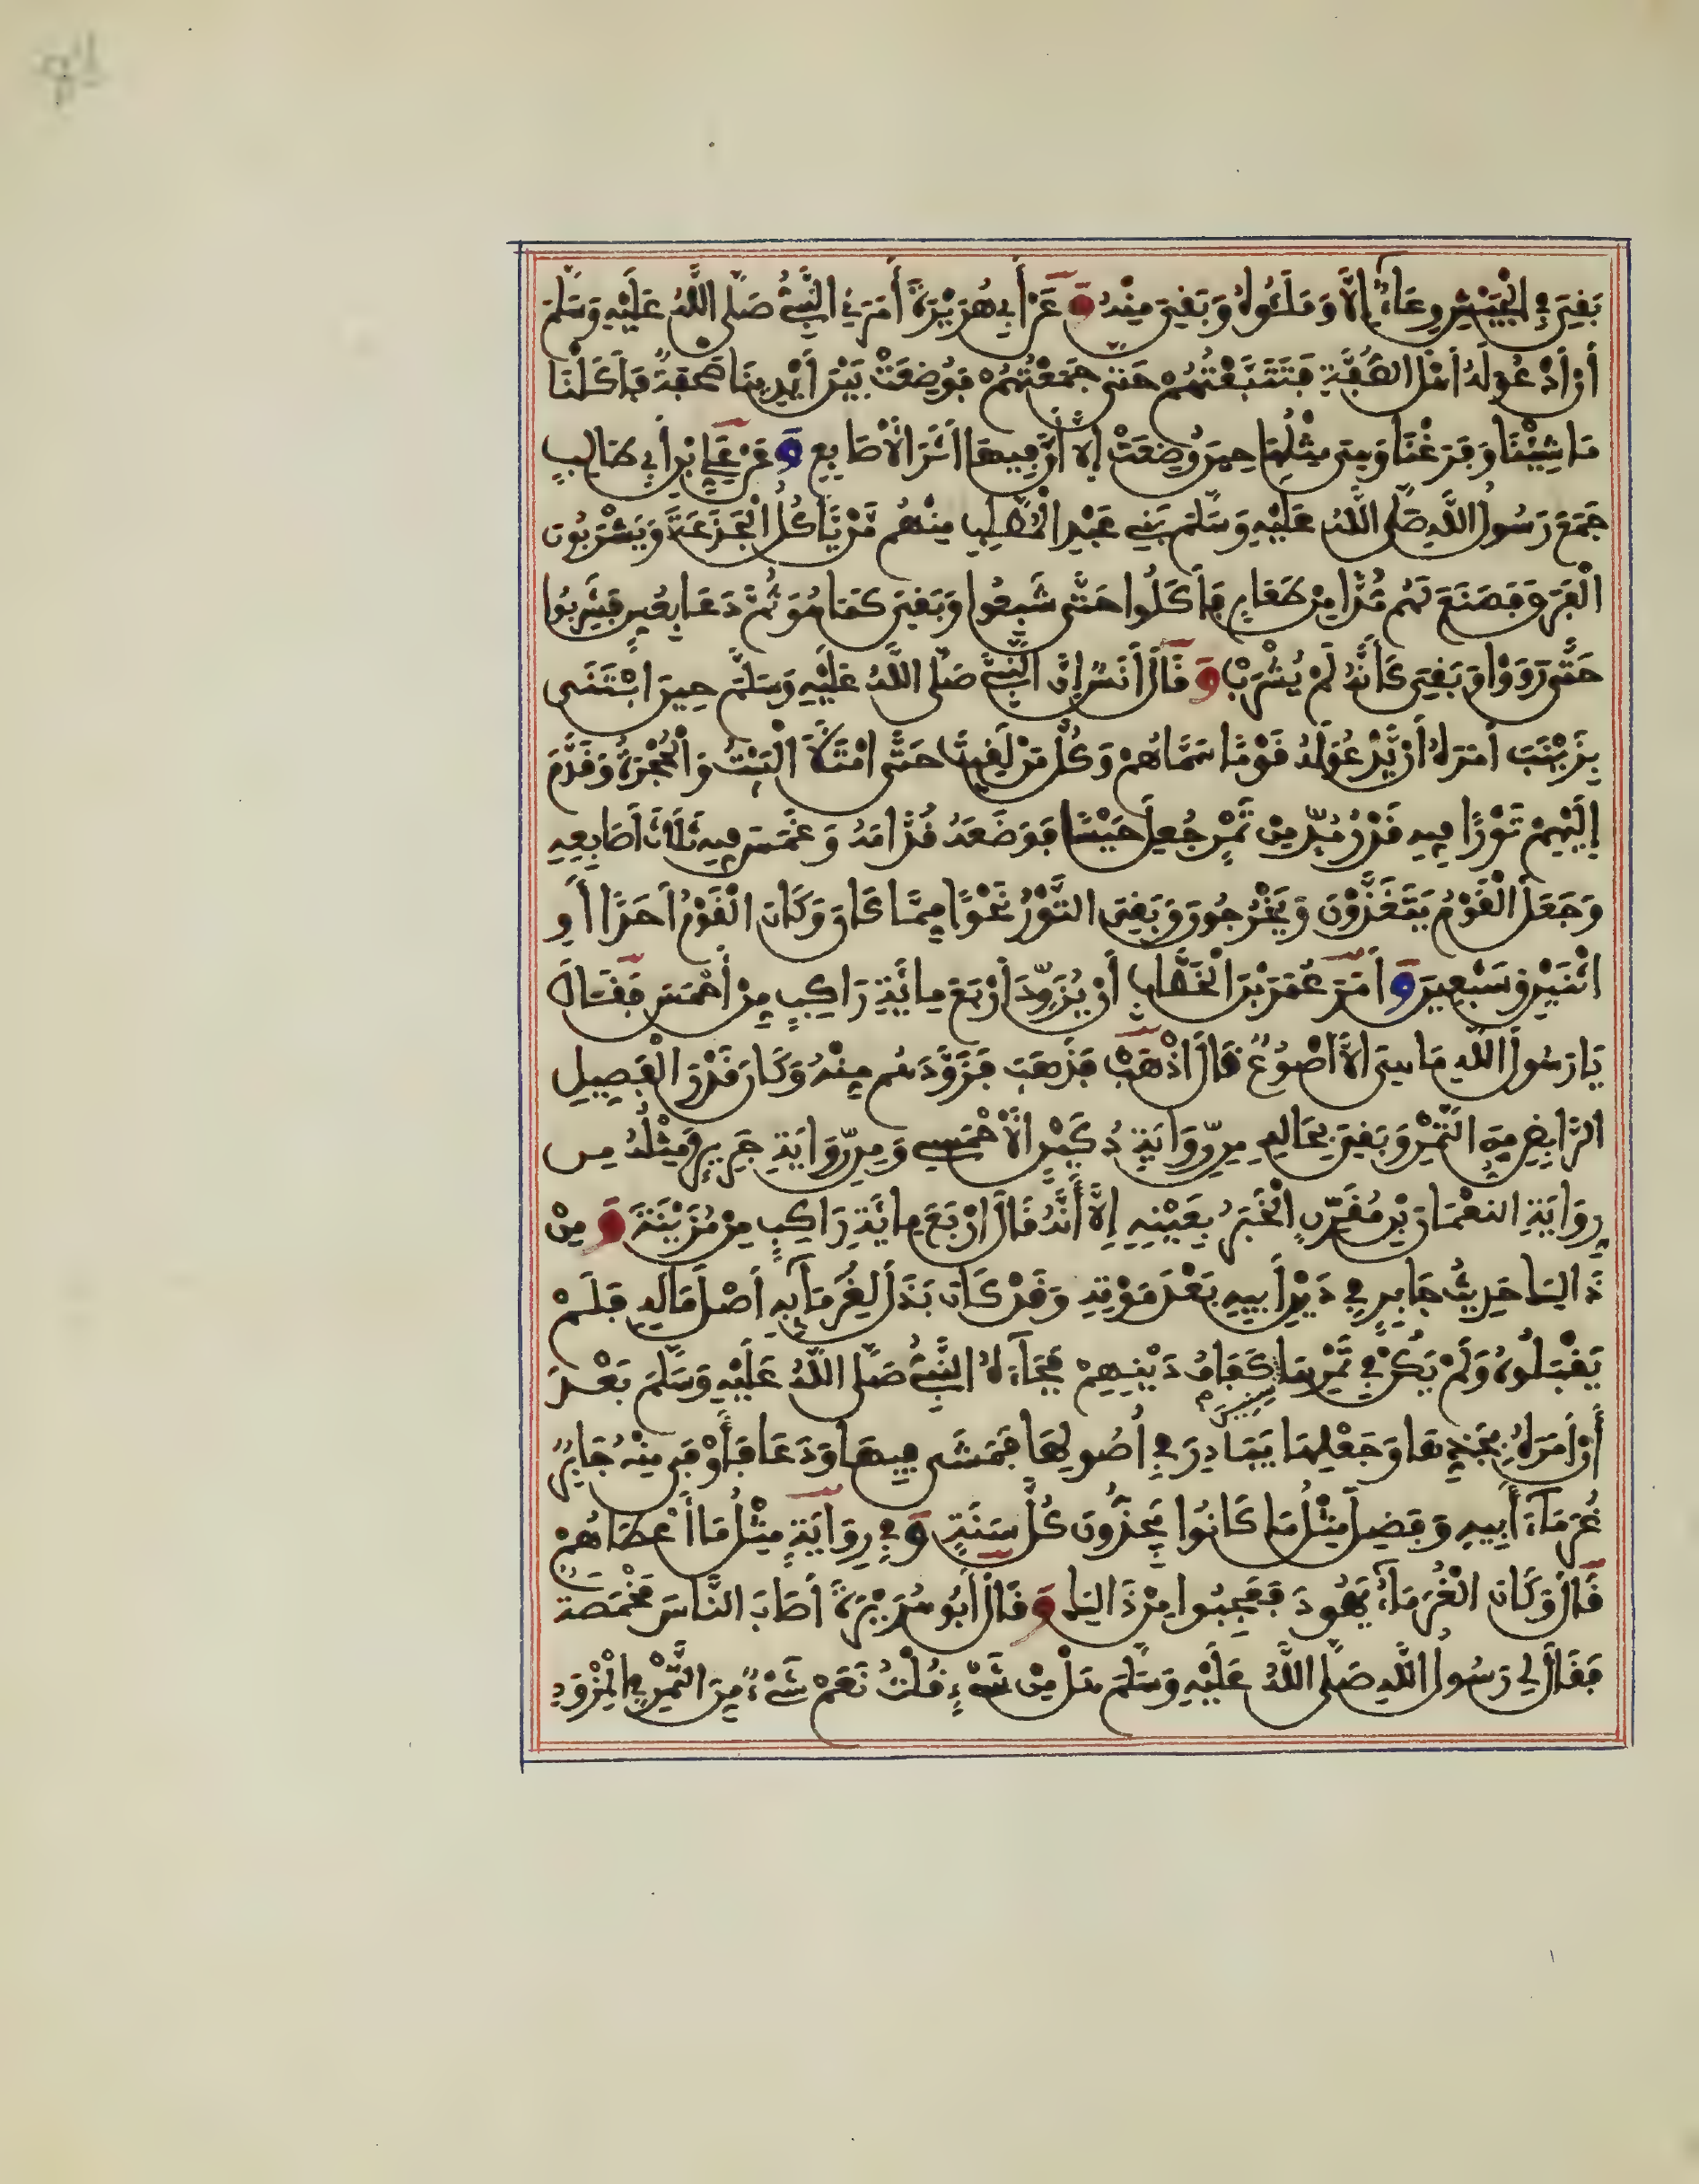 بَقِيَ فِي الْجَيْشِ وِعَاءٌ إِلَّا وَمَلَئُوهُ وَبَقِيَ مِنْهُ وَعَنْ أَبِي هُرَيْرَةَ أَمَرَنِي النَّبِيُّ صَلَّى اللَّهُ عَلَيْهِ وَسَلَّمَ
أَنْ أَدْعُوَ لَهُ أَهْلَ الصُّفَّةِ فَتَتَبَّعْتُهُمْ حَتَّى جَمَعْتُهُمْ فَوُضِعَتْ بَيْنَ أَيْدِينَا صَحْفَةٌ فَأَكَلْنَا
مَا شِئْنَا وَفَرَغْنَا وَهِيَ مِثْلُهَا حِينَ وُضِعَتْ إِلَّا أَنَّ فِيهَا أَثَرَ الْأَصَابِعِ وَعَنْ عَلِيِّ بْنِ أَبِي طَالِبٍ
جَمَعَ رَسُولُ اللَّهِ صَلَّى اللَّهُ عَلَيْهِ وَسَلَّمَ بَنِي عَبْدِ الْمُطَّلِبِ مِنْهُمْ مَنْ يَّأْكُلُ الْجَذَعَةَ وَيَشْرَبُونَ
الْفَرَقَ فَصَنَعَ لَهُمْ مُدًّا مِنْ طَعَامٍ فَأَكَلُوا حَتَّى شَبِعُوا وَبَقِيَ كَمَا هُوَ ثُمَّ دَعَا بِعُسٍّ فَشَرِبُوا
حَتَّى رَوَوْا وَبَقِيَ كَأَنَّهُ لَمْ يُشْرَبْ وَقَالَ أَنَسٌ إِنَّ النَّبِيَّ صَلَّى اللَّهُ عَلَيْهِ وَسَلَّمَ حِينَ ابْتَنَى
بِزَيْنَبَ أَمَرَهُ أَنْ يَّدْعُوَ لَهُ قَوْمًا سَمَّاهُمْ وَكُلَّ مَنْ لَقِيتَ حَتَّى امْتَلَأَ الْبَيْتُ وَالْحُجْرَةُ وَقَدَّمَ
إِلَيْهِمْ تَوْرًا فِيهِ قَدْرُ مُدٍّ مِنْ تَمْرٍ جُعِلَ حَيْسًا فَوَضَعَهُ قُدَّامَهُ وَغَمَسَ فِيهِ ثَلَاثَ أَصَابِعِهِ
وَجَعَلَ الْقَوْمُ يَتَغَدَّوْنَ وَيَخْرُجُونَ وَبَقِيَ التَّوْرُ نَحْوًا مِمَّا كَانَ وَكَانَ الْقَوْمُ أَحَدًا أَوِ
اثْنَيْنِ وَسَبْعِينَ وَأَمَرَ عُمَرَ بْنَ الْخَطَّابِ أَنْ يُزَوِّدَ أَرْبَعَ مِائَةِ رَاكِبٍ مِنْ أَحْمَسَ فَقَالَ
يَا رَسُولَ اللَّهِ مَا هِيَ إِلَّا أَصْوُعٌ قَالَ اذْهَبْ فَذَهَبَ فَزَوَّدَهُم مِنْهُ وَكَانَ قَدْرَ الْفَصِيلِ
الرَّابِضِ مِنَ التَّمْرِ وَبَقِيَ بِحَالِهِ مِن رِّوَايَةِ دُكَيْنٍ الْأَحْمَسِي وَمِن رِّوَايَةِ جَرِيرٍ وَمِثْلُهُ مِن
رِوَايَةِ النعْمَانِ بْنِ مُقَرِّنٍ الْخَبَرُ بِعَيْنِهِ إِلَّا أَنَّهُ قَالَ أَرْبَعَ مِائَةِ رَاكِبٍ مِنْ مُزَيْنَةَ وَمِنْ
ذَالِكَ حَدِيثُ جَابِرٍ فِي دَيْنِ أَبِيهِ بَعْدَ مَوْتِهِ وَقَدْ كَانَ بَذَلَ لِغُرَمَآءِ أَبِيهِ أَصْلَ مَالِهِ فَلَمْ
يَقْبَلُوهُ وَلَمْ يَكُنْ فِي ثَمَرِهَا سنين كَفَافُ دَيْنِهِمْ فَجَآءَهُ النَّبِيُّ صَلَّى اللَّهُ عَلَيْهِ وَسَلَّمَ بَعْدَ
أَنْ أَمَرَهُ بِجَذِّهَا وَجَعْلِهَا بَيَادِرَ فِي أُصُولِهَا فَمَشَى فِيهَا وَدَعَا فَأَوْفَى مِنْهُ جَابِرٌ
غُرَمَآءَ أَبِيهِ وَفَضِلَ مِثْلُ مَا كَانُوا يَجُذُّونَ كُلَّ سَنَةٍ وَفِي رِوَايَةٍ مِثْلُ مَا أَعْطَاهُمْ
قَالَ وَكَانَ الْغُرَمَآءُ يَهُودَ فَعَجِبُوا مِنْ ذَالِكَ وَقَالَ أَبُو هُرَيْرَةَ أَصَابَ النَّاسَ مَخْمَصَةٌ
فَقَالَ لِي رَسُولُ اللَّهِ صَلَّى اللَّهُ عَلَيْهِ وَسَلَّمَ هَلْ مِنْ شَيْءٍ قُلْتُ نَعَمْ شَيْءٌ مِنَ التَّمْرِ فِي الْمِزْوَدِ